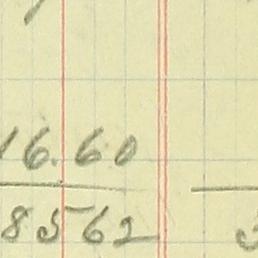 16.60
8562